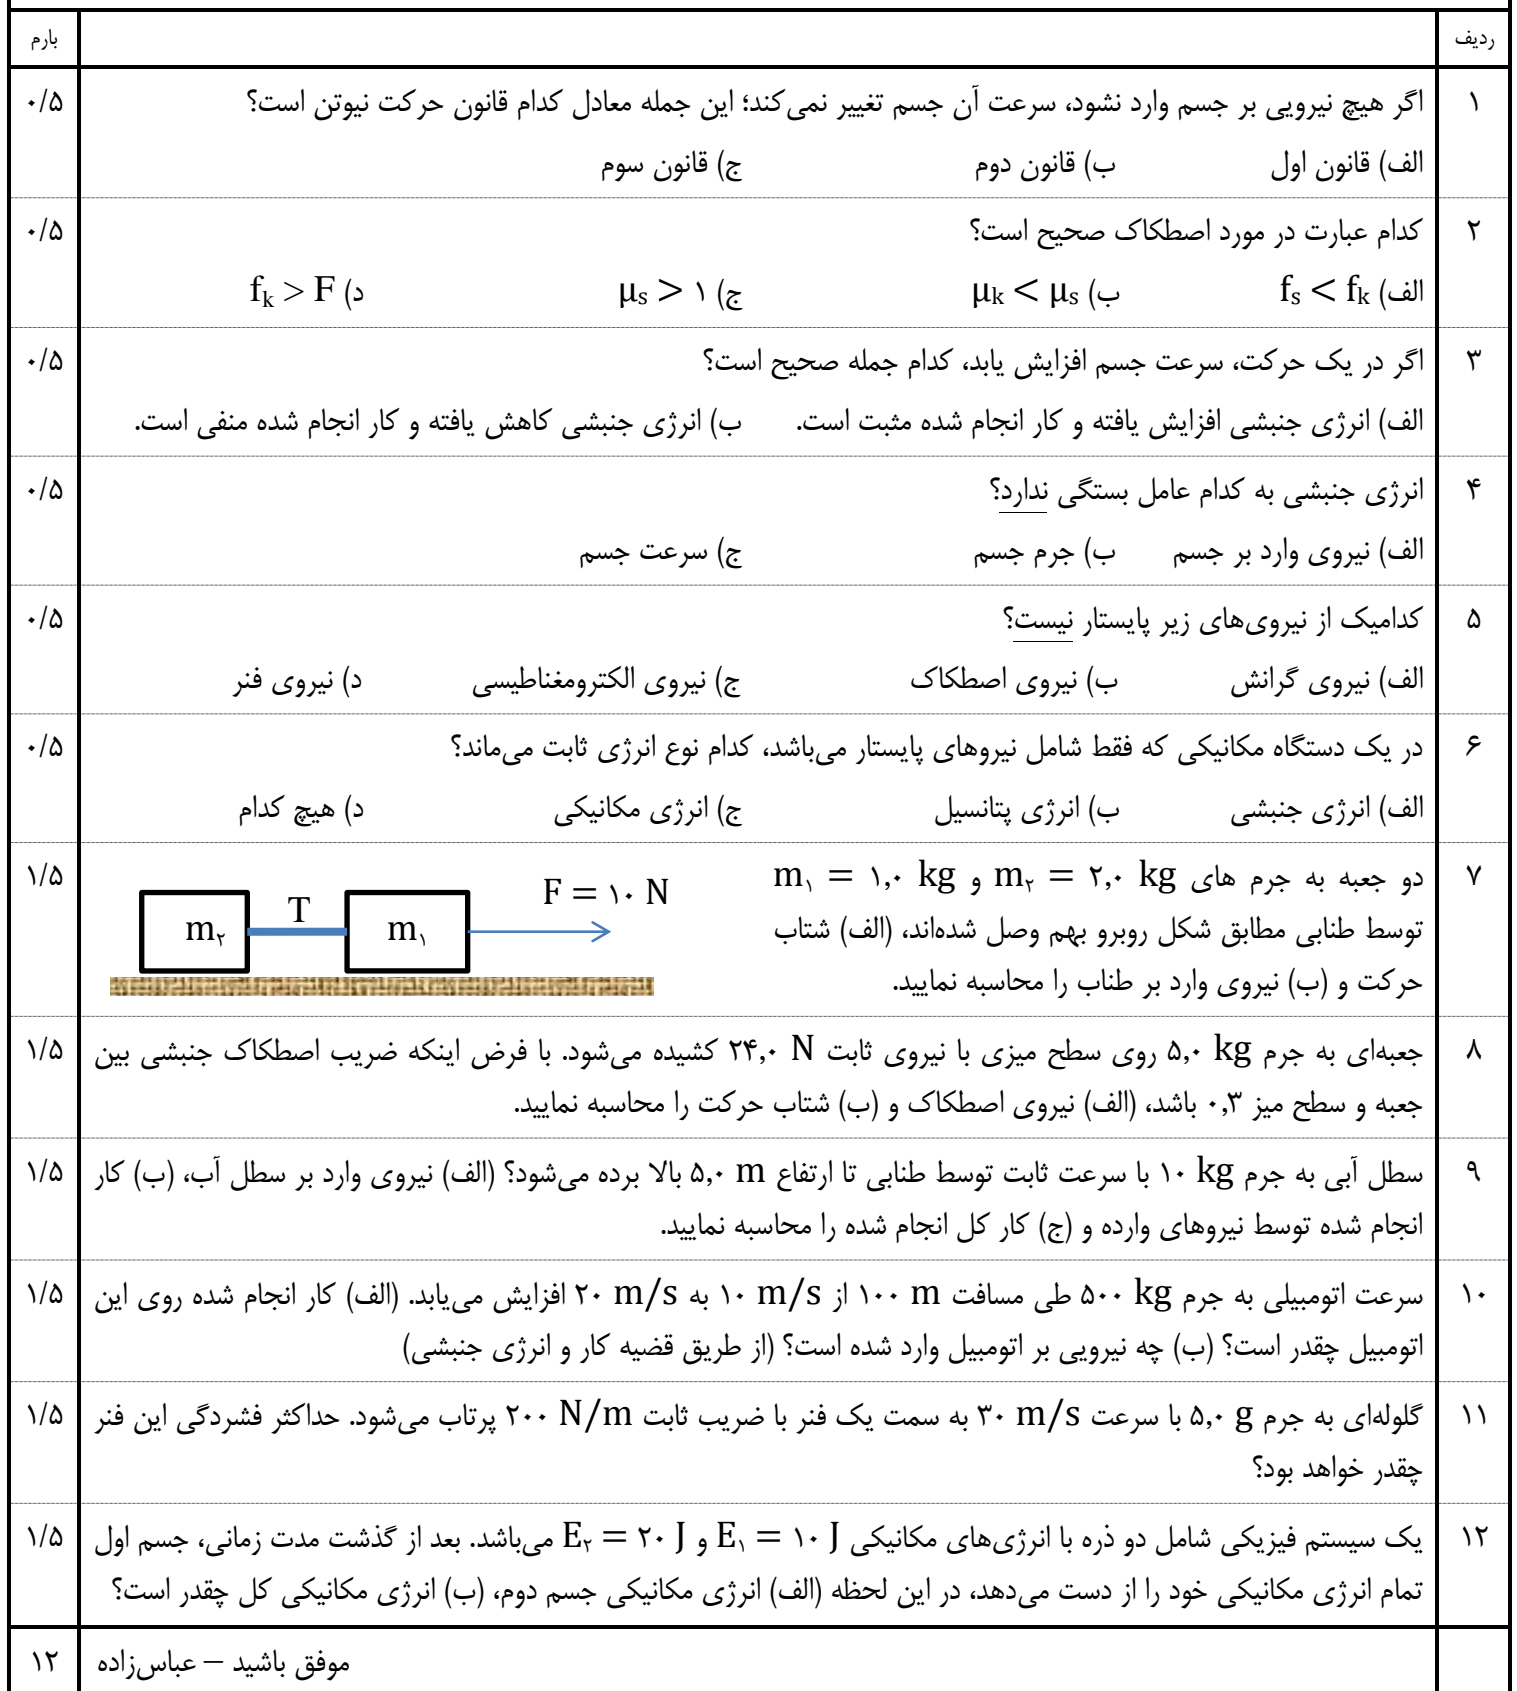 ردیف بارم
۱ اگر هیچ نیرویی بر جسم وارد نشود، سرعت آن جسم تغییر نمی‌کند؛ این جمله معادل کدام قانون حرکت نیوتن است؟ ۰/۵
الف) قانون اول ب) قانون دوم ج) قانون سوم
۲ کدام عبارت در مورد اصطکاک صحیح است؟ ۰/۵
الف) fs < fk ب) μk < μs ج) μs > ۱ د) fk > F
۳ اگر در یک حرکت، سرعت جسم افزایش یابد، کدام جمله صحیح است؟ ۰/۵
الف) انرژی جنبشی افزایش یافته و کار انجام شده مثبت است. ب) انرژی جنبشی کاهش یافته و کار انجام شده منفی است.
۴ انرژی جنبشی به کدام عامل بستگی ندارد؟ ۰/۵
الف) نیروی وارد بر جسم ب) جرم جسم ج) سرعت جسم
۵ کدامیک از نیروی‌های زیر پایستار نیست؟ ۰/۵
الف) نیروی گرانش ب) نیروی اصطکاک ج) نیروی الکترومغناطیسی د) نیروی فنر
۶ در یک دستگاه مکانیکی که فقط شامل نیروهای پایستار می‌باشد، کدام نوع انرژی ثابت می‌ماند؟ ۰/۵
الف) انرژی جنبشی ب) انرژی پتانسیل ج) انرژی مکانیکی د) هیچ کدام
۷ دو جعبه به جرم های m۲ = ۲٫۰ kg و m۱ = ۱٫۰ kg ۱/۵
توسط طنابی مطابق شکل روبرو بهم وصل شده‌اند، (الف) شتاب
حرکت و (ب) نیروی وارد بر طناب را محاسبه نمایید.
F = ۱۰ N
m۲ T m۱
۸ جعبه‌ای به جرم ۵٫۰ kg روی سطح میزی با نیروی ثابت ۲۴٫۰ N کشیده می‌شود. با فرض اینکه ضریب اصطکاک جنبشی بین ۱/۵
جعبه و سطح میز ۰٫۳ باشد، (الف) نیروی اصطکاک و (ب) شتاب حرکت را محاسبه نمایید.
۹ سطل آبی به جرم ۱۰ kg با سرعت ثابت توسط طنابی تا ارتفاع ۵٫۰ m بالا برده می‌شود؟ (الف) نیروی وارد بر سطل آب، (ب) کار ۱/۵
انجام شده توسط نیروهای وارده و (ج) کار کل انجام شده را محاسبه نمایید.
۱۰ سرعت اتومبیلی به جرم ۵۰۰ kg طی مسافت ۱۰۰ m از ۱۰ m/s به ۲۰ m/s افزایش می‌یابد. (الف) کار انجام شده روی این ۱/۵
اتومبیل چقدر است؟ (ب) چه نیرویی بر اتومبیل وارد شده است؟ (از طریق قضیه کار و انرژی جنبشی)
۱۱ گلوله‌ای به جرم ۵٫۰ g با سرعت ۳۰ m/s به سمت یک فنر با ضریب ثابت ۲۰۰ N/m پرتاب می‌شود. حداکثر فشردگی این فنر ۱/۵
چقدر خواهد بود؟
۱۲ یک سیستم فیزیکی شامل دو ذره با انرژی‌های مکانیکی E۱ = ۱۰ J و E۲ = ۲۰ J می‌باشد. بعد از گذشت مدت زمانی، جسم اول ۱/۵
تمام انرژی مکانیکی خود را از دست می‌دهد، در این لحظه (الف) انرژی مکانیکی جسم دوم، (ب) انرژی مکانیکی کل چقدر است؟
موفق باشید – عباس‌زاده ۱۲